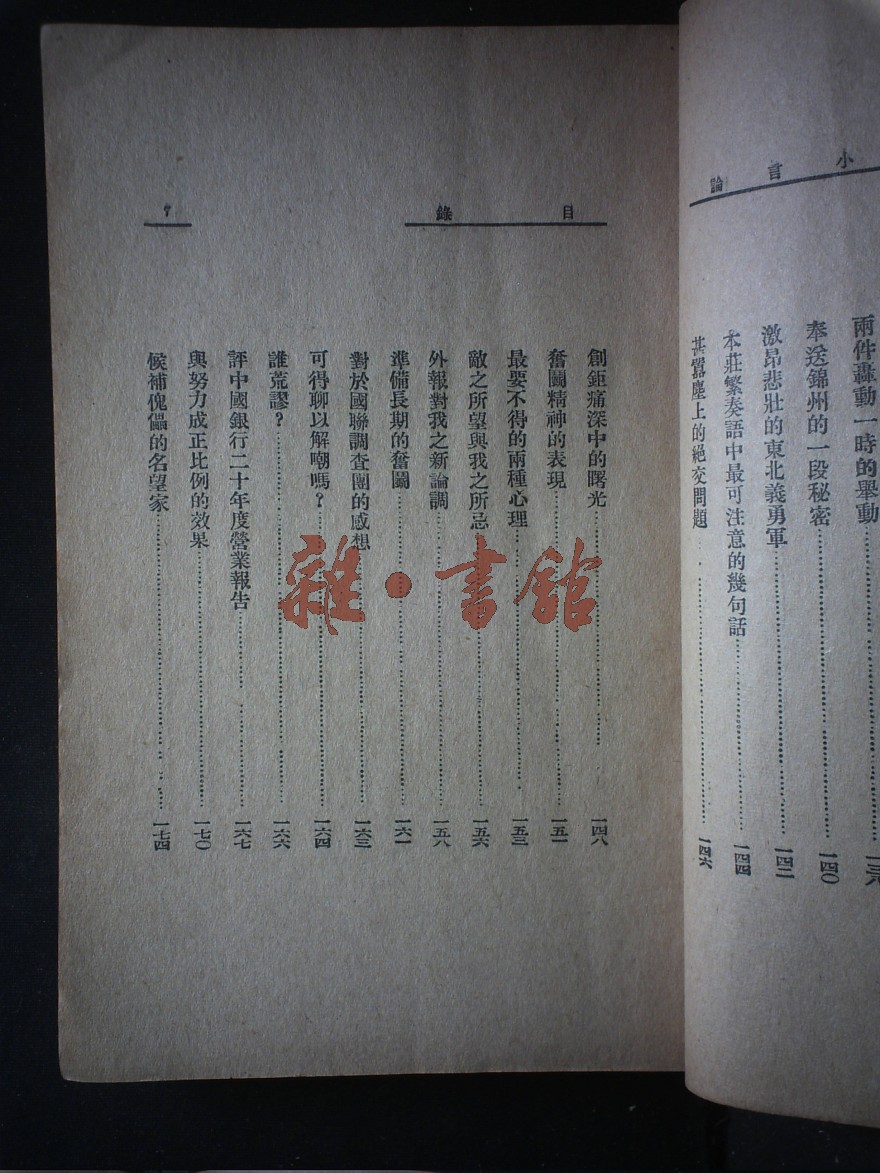 小言論
兩件轟動一時的舉動
奉送錦州的一段秘密……一四〇
激昂悲壯的東北義勇軍……一四二
本莊繁奏語中最可注意的幾句話……一四四
甚囂塵上的絕交問題……一四六
目錄
7
創鉅痛深中的曙光……一四八
奮鬭精神的表現……一五一
最要不得的兩種心理……一五三
敵之所望與我之所忌……一五六
外報對我之新論調……一五八
準備長期的奮鬭……一六一
對於國聯調查團的感想……一六三
可得聊以解嘲嗎？……一六四
誰荒謬？……一六六
評中國銀行二十年度營業報告……一六七
與努力成正比例的效果……一七〇
候補傀儡的名望家……一七四
雜·書館